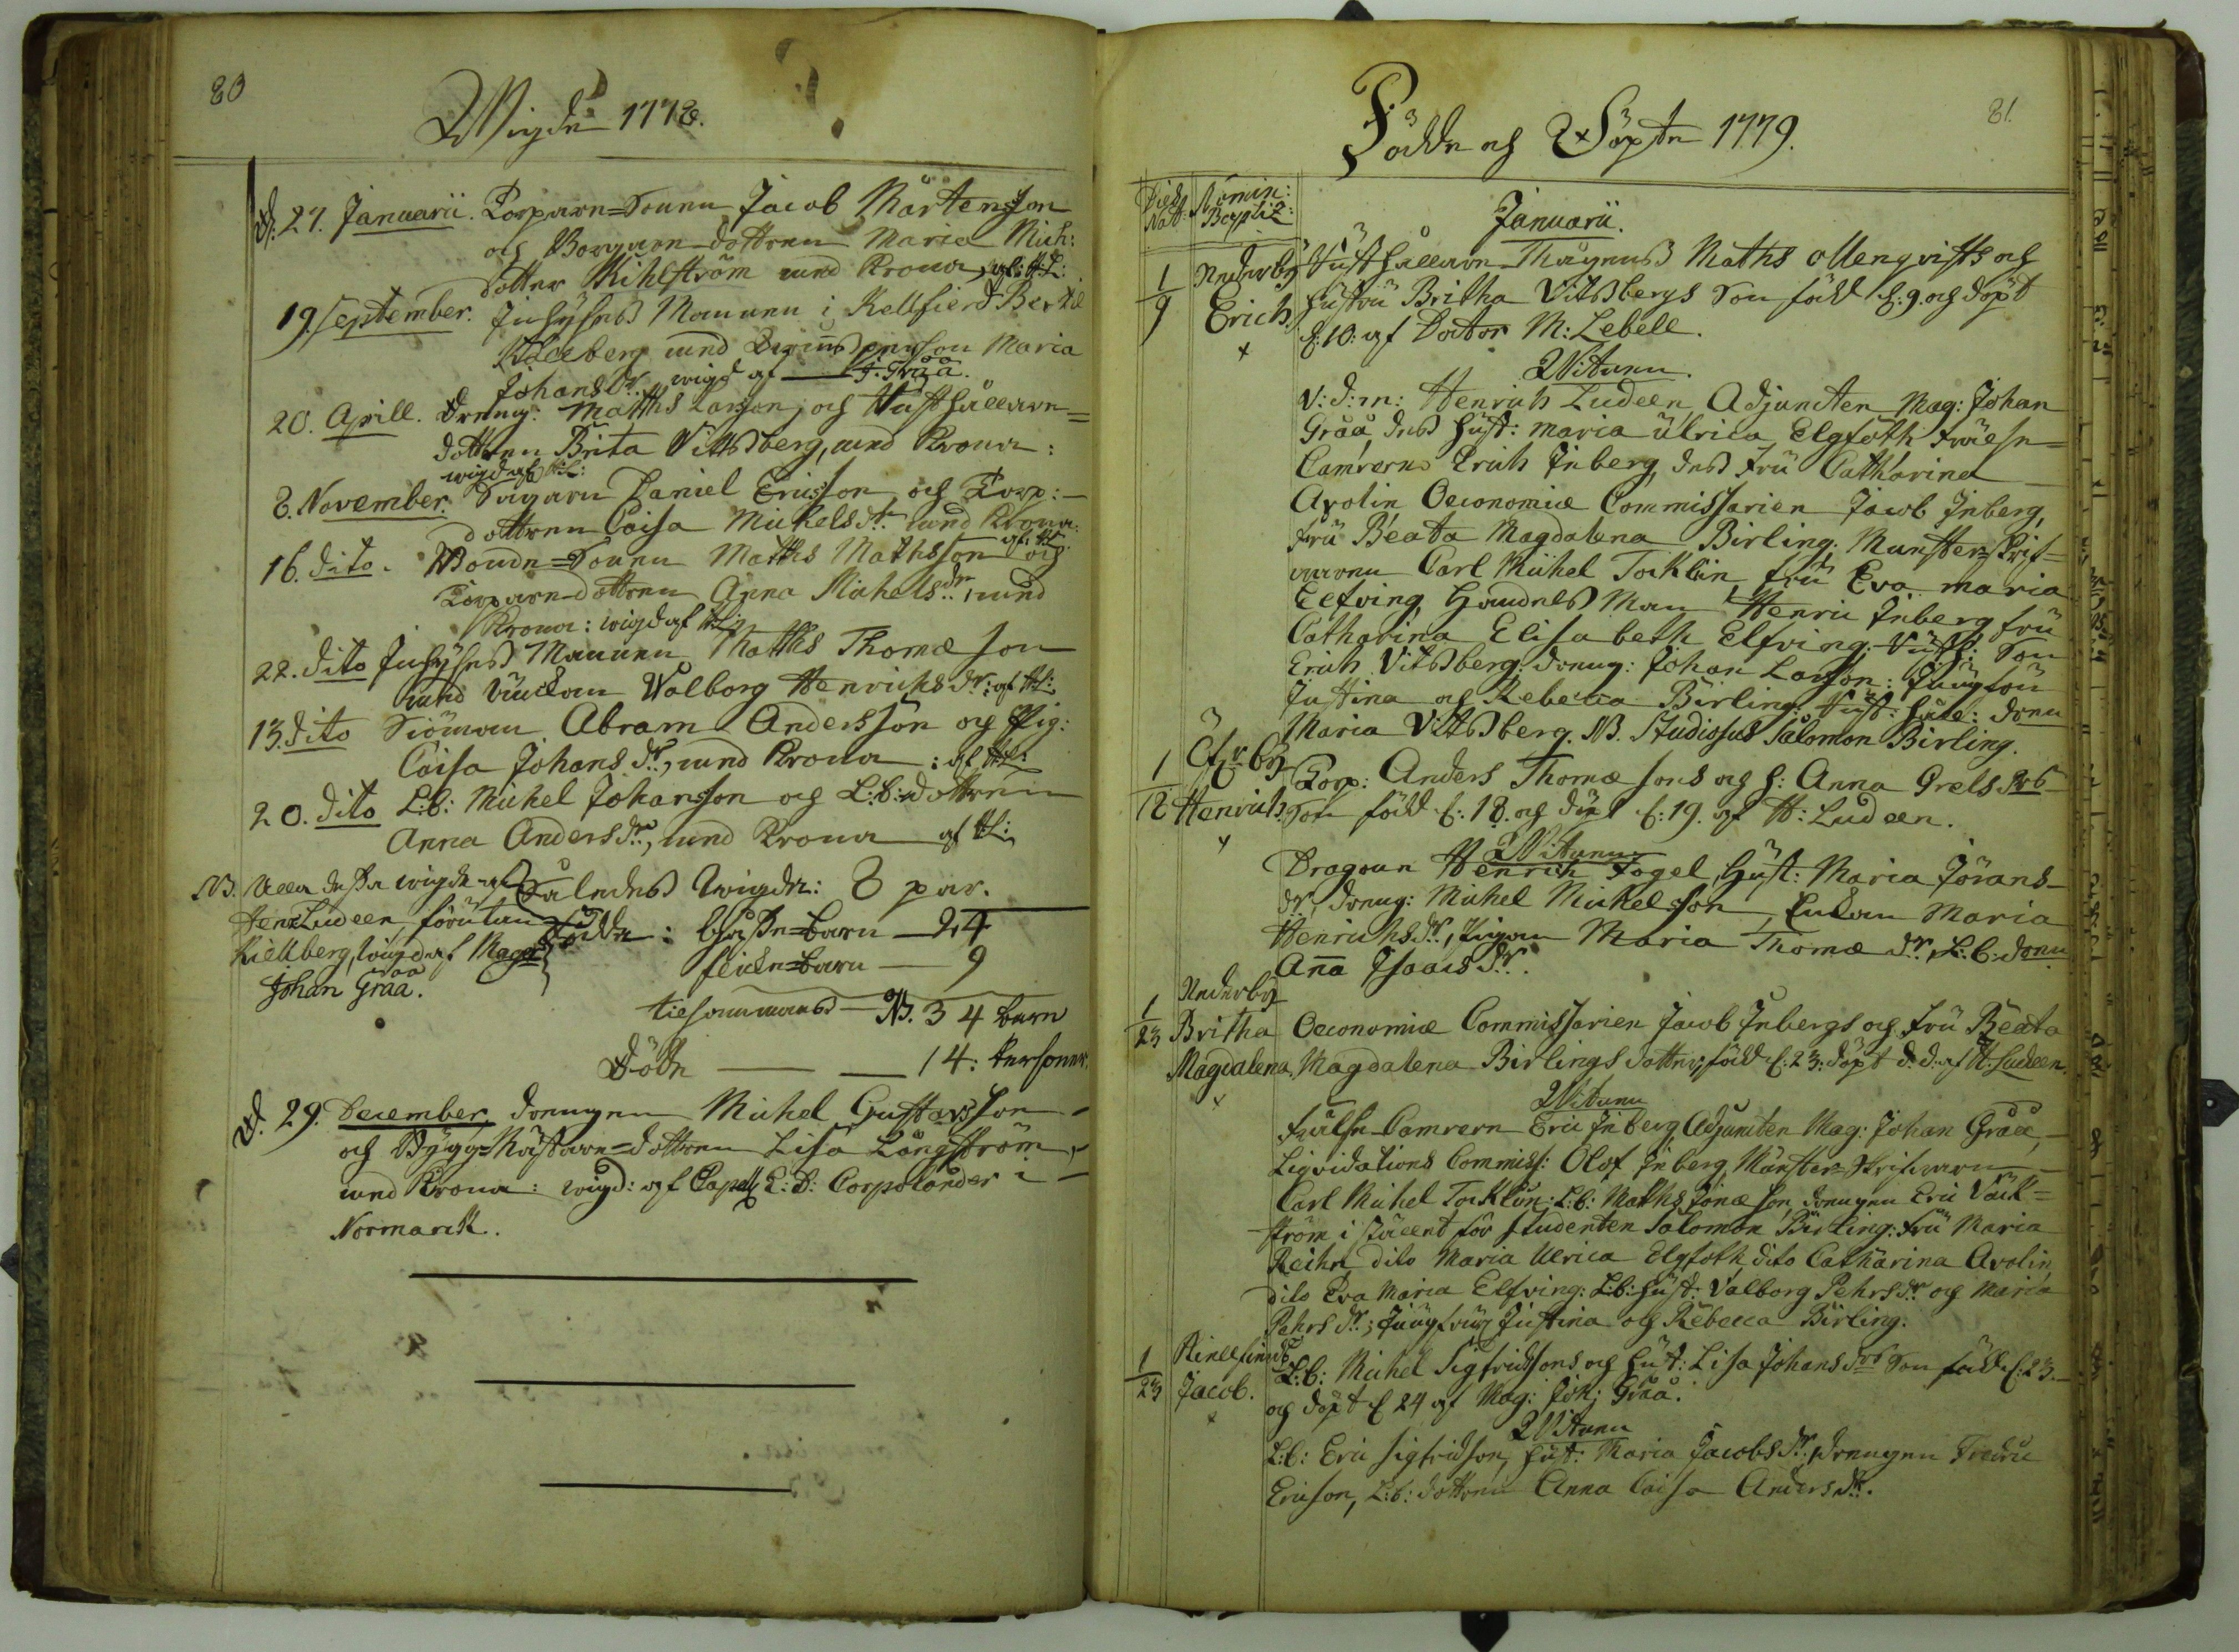 80
Wigde 1778.
d. 27. Januarii. Torparn=Sonen Jacob Mårtensson
och Borgaren-dottren Maria Mich:
dotter Kihlström und Krona, af: H:L:
19. September. Inhyses Mannen i Kellfierd Bertil
Kilceberg und Maria
Johans Dr. wigd af — J. Gråå.
20. Aprill. Dreng: Matths Larsson, och Rusthållaren=
dottren Brita Vittsberg, und Krona:
wigd af H:L:
8. November. Sagaren Daniel Ericsson, och Torp:—
dottren Caisa Michels dr. und Krona:
af: H:
16. dito. Bonde=Sonen Matths Mathsson och
Torparen dottren Anna Michels dr., und
Krona: wigd af H:L:
22. dito Inhyses Mannen Matths Thomæ son
und Enckan Walborg Henrichs dr: af H:L:
13. dito Siöman Abram Andersson och Pig:
Caisa Johans dr., und Krona: af H:L:
20. dito L:b: Michel Johansson och L:b: dottren
Anna Anders dr., und Krona af H:L:
NB. Alla dessa wigde af Således wigde: 8 par.
Hen: Ludeen, förutan födde: gåsse=barn — 24
Kiellberg, wigd af Mag: flicke=barn — 9
Johan Gråå.
tilsammans — NB. 34 barn
Döde — — 14: Personer.
d. 29. December, drengen Michel Gustafsson
och Bygg=Mästaren=dottren Lisa Långström,
und Krona: wigd: af Capell: L: D: Corpolander i
Normarck.
81.
Födde och Döpte 1779.
Dies Nat: Nomin: Baptiz:
Januarii.
1/9 Nederby Erich. Rusthållaren Thäynes Maths Allenqvists och
hustru Britha Vittsbergs Son född d: 9. och döpt
d: 10: af Doctor M: Lebell.
Wittnen.
V: D: m: Henrich Ludeen, Adjuncten Mag: Johan
Gråå, des hust: Maria Ulrica Elgfoth Frälse=
Camreren Erich Inberg, des Fru Catharina
Avolin Oeconomiæ Commissarien Jacob Inberg,
Fru Beata Magdalena Birling. Munster=Skrif=
waren Carl Michel Tocklin, fru Eva Maria
Elfving, Handels Man Henric Inberg fru
Catharina Elisabeth Elfving. Rusth: Son
Erich Vittsberg. dreng: Johan Larsson: Jungfru
Justina och Rebecca Birling: Rust: håll: dotter
Maria Vittsberg. NB. Studiosus Salomon Birling.
1/18 Öfverby Henrich. Torp: Anders Thomæ sons och h: Anna Grels drs
Son född d: 18. och döpt d: 19. af H: Ludeen.
Wittnen
Dragoun Henrich Fogel, Hust: Maria Jörans
dr, dreng: Michel Michelsson, Enckan Maria
Henrichs dr., Pigan Maria Thomæ dr. L:b: dotter
Anna Isaacs dr.
1/23 Nederby Britha Magdalena. Oeconomiæ Commissarien Jacob Inbergs och Fru Beata
Magdalena Birlings dotter, född d: 23: döpt d. d. af H: Ludeen.
Wittnen
Frälse Camreren Eric Inberg, Adjuncten Mag: Johan Gråå,
Liqvidations Commiss: Olof Inberg Münster=Skrifwaren
Carl Michel Tocklin: L:b: Matths Jönæ son, drengen Eric Väck=
ström i stället för Studenten Salomon Birling: Fru Maria
Reihn, dito Maria Ulrica Elgfoth, dito Catharina Avolin,
dito Eva Maria Elfving: L:b: hust: Valborg Pehrs dr. och Maria
Pehrs dr.; Jungfrur Justina och Rebecca Birling.
1/23 Kiellfierd Jacob. L:b: Michel Sigfridssons och hust: Lisa Johans drs Son född d: 23.
och döpt d 24 af Mag: Joh: Gråå.
Wittnen
L:b: Eric Sigfridson, hust: Maria Jacobs dr: drengen Fredric
Ericson, L:b: dottren Anna Caisa Anders dr.